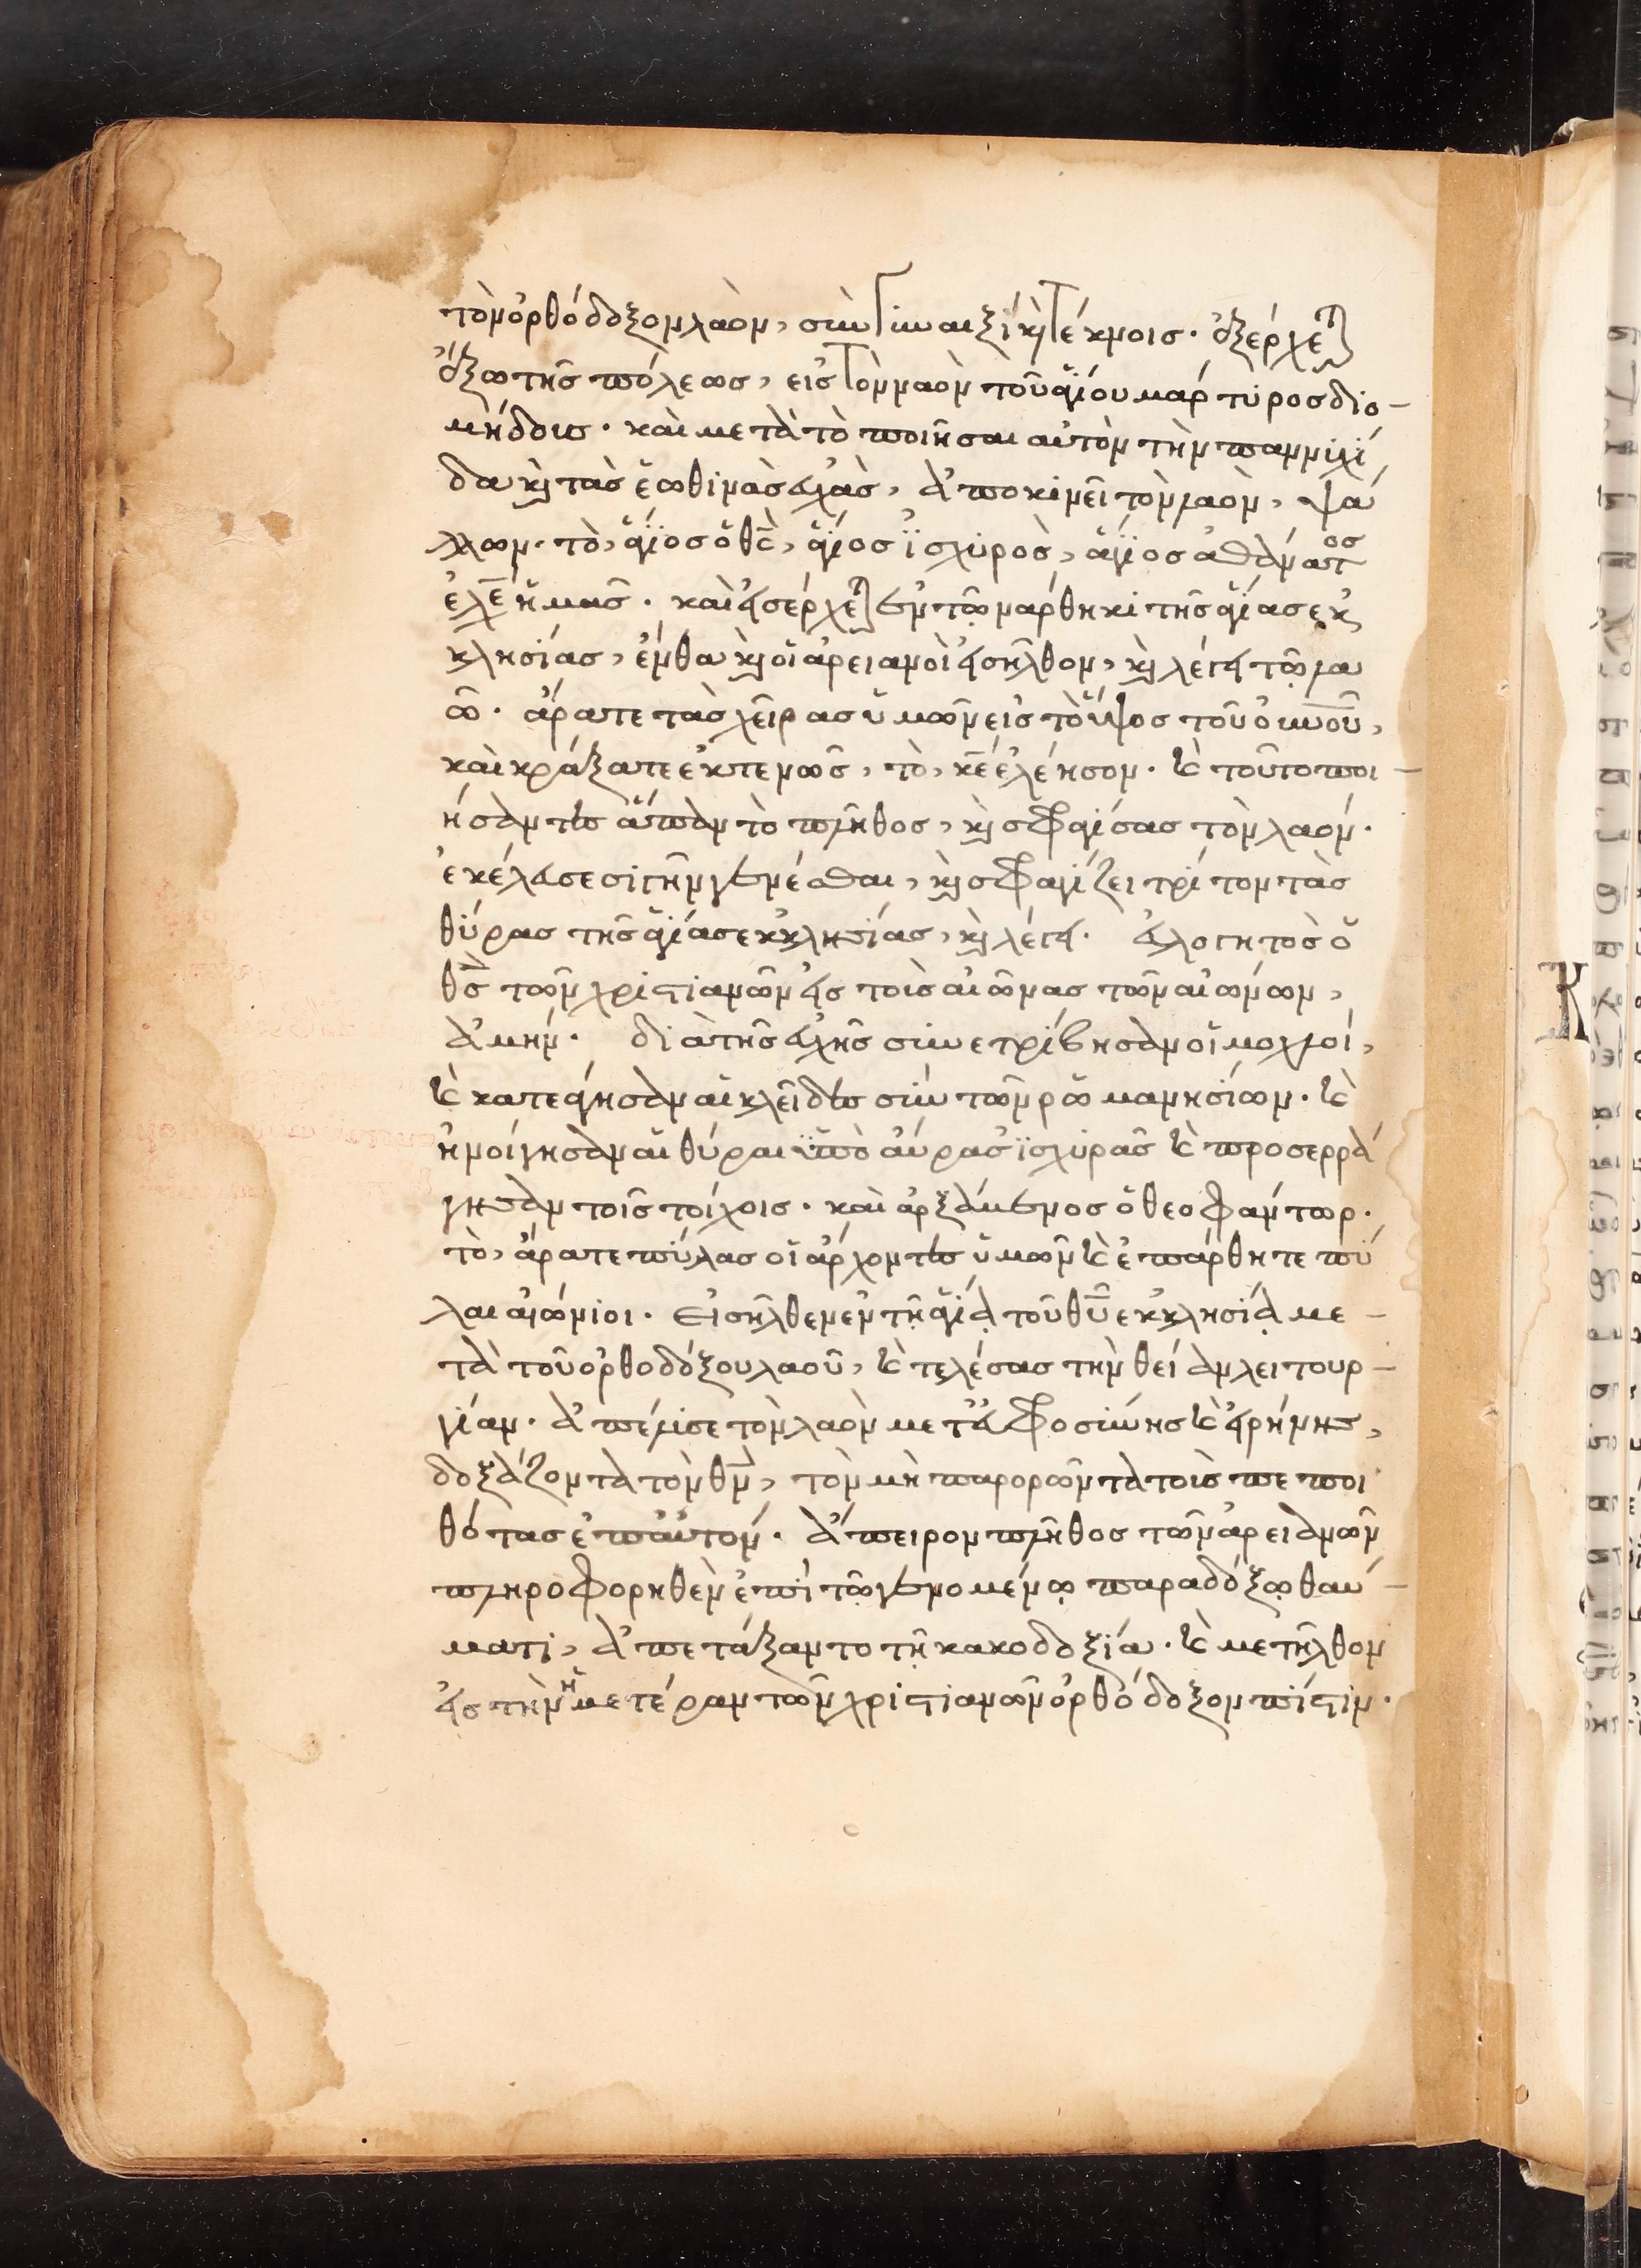 τὸν ὀρθόδοξον λαὸν, σὺν γυναιξί κὶ τέκνοις. ἐξέρχεται
ἔξω τῆς πόλεως, εἰς τὸν ναὸν τοῦ ἁγίου μάρτυρος διο-
μήδους. καὶ μετὰ τὸ ποιῆσαι αὐτὸν τὴν παννυχί
δα κὶ τὰς ἑωθινὰς εὐχὰς, ἀποκινεῖ τὸν λαὸν, ψά
λλων. τὸ, ἅγϊος ὁ θς̅, ἅγϊος ϊσχυρὸς, ἅγϊος ἀθάνατος
ἐλε̅ ἡμᾶς. καὶ εἰσέρχεται ἐν τῷ νάρθηκι τῆς ἁγίας ἐκ
κλησίας, ἔνθα κὶ οἱ ἀρειανοὶ εἰσῆλθον, κὶ λέγει τῷ λα
ῷ. ἄρατε τὰς χεῖρας ὑμῶν εἰς τὸ ὕψος τοῦ ο̅υ̅νο̅υ̅,
καὶ κράξατε ἐκτενῶς, τὸ, κ̅ε̅ ἐλέησον. καὶ τοῦτο ποι-
ήσαντες ἅπαν τὸ πλῆθος, κὶ σφραγίσας τὸν λαόν.
ἐκέλευσε σιγὴν γενέσθαι, κὶ σφραγίζει τρίτον τὰς
θύρας τῆς ἁγίας ἐκκλησίας, κὶ λέγει. εὐλογητὸς ὁ
θς̅ τῶν χριστιανῶν εἰς τοὺς αἰῶνας τῶν αἰώνων,
ἀμήν. διὰ τῆς εὐχῆς συνετρίβησαν οἱ μοχλοί,
καὶ κατεάγησαν αἱ κλεῖδες σὺν τῶν ρωμανησίων. καὶ
ἠνοίγησαν αἱ θύραι ὑπὸ αὔρας ϊσχυρᾶς καὶ προσερρά
γησαν τοῖς τοίχοις. καὶ ἀρξάμενος ὁ θεοφάντωρ.
τὸ, ἄρατε πύλας οἱ ἄρχοντες ὑμῶν καὶ ἐπάρθητε πύ
λαι αἰώνιοι. εἰσῆλθεν ἐν τῇ ἁγίᾳ τοῦ θ̅υ̅ ἐκκλησίᾳ με-
τὰ τοῦ ὀρθοδόξου λαοῦ, καὶ τελέσας τὴν θείαν λειτουρ-
γίαν. ἀπέλυσε τὸν λαὸν μετ' εὐφροσύνης καὶ εἰρήνης,
δοξάζοντα τὸν θν̅, τὸν μὴ παρορῶντα τοὺς πεποι
θότας ἐπ' αὐτόν. ἄπειρον πλῆθος τῶν ἀρειανῶν
πληροφορηθὲν ἐπὶ τῷ γενομένῳ παραδόξῳ θαύ-
ματι, ἀπετάξαντο τῇ κακοδοξίᾳ. καὶ μετῆλθον
εἰς τὴν ἡμετέραν τῶν χριστιανῶν ὀρθόδοξον πίστιν.